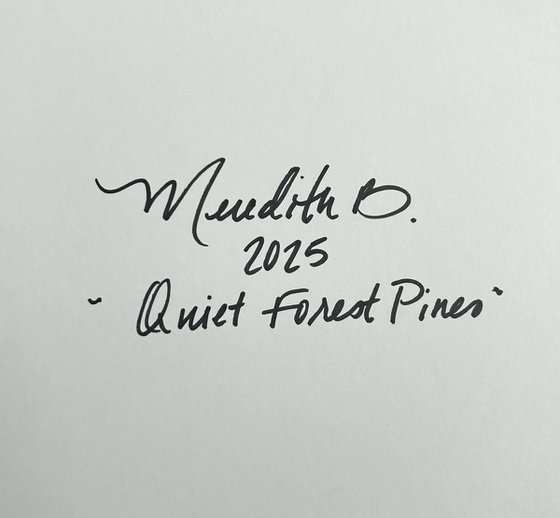 Meredith B.
2025
"Quiet Forest Pines"